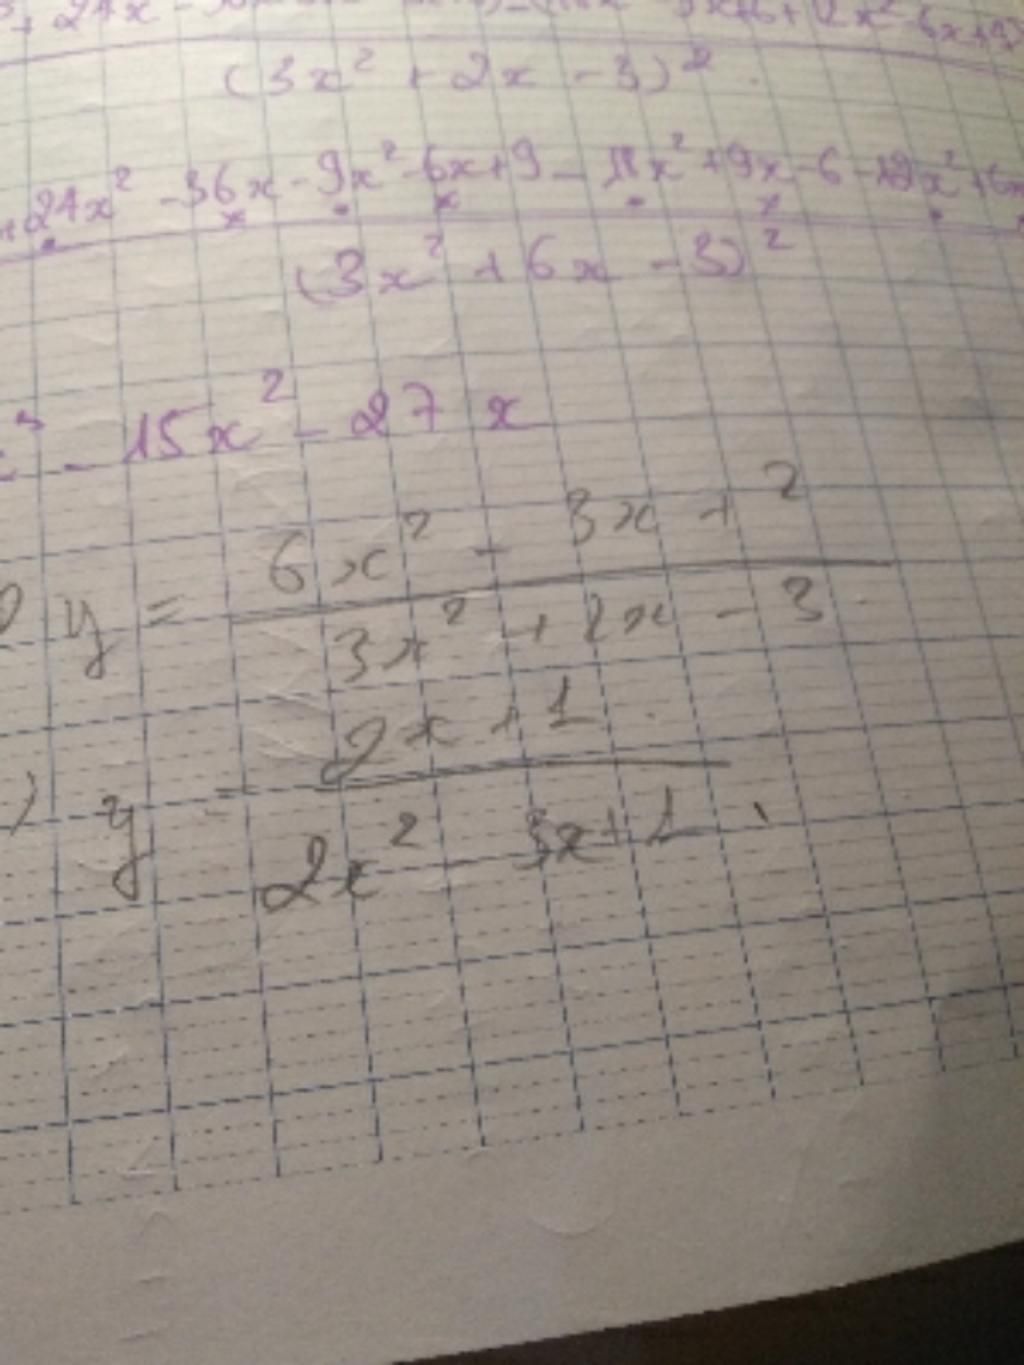 (3x² + 2x - 3)²
24x² - 36x - 9x² - 6x + 9 - 18x² + 9x - 6 - 12x² + 6x
(3x² + 6x - 3)²
- 15x² - 27x
y = 6x² - 3x + 2
3x² + 2x - 3
2x + 1
) y =
2x² 3x + 1